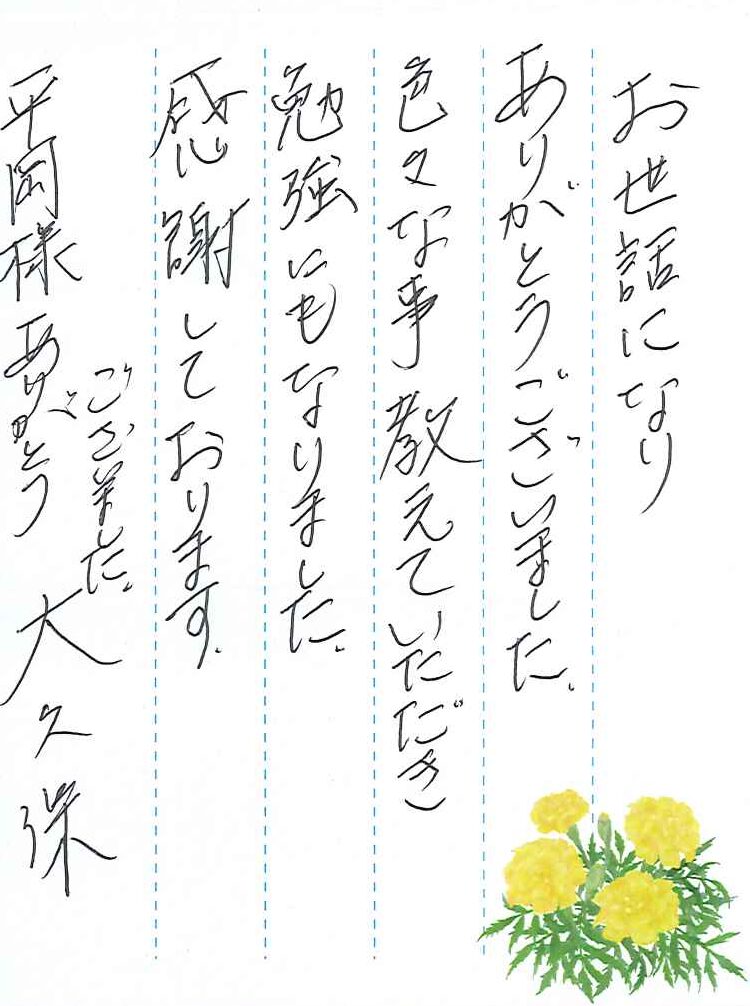 お世話になり
ありがとうございました.
色々な事教えていただき
勉強にもなりました.
感謝しております.
平岡様ありがとう
ございました.
大久保